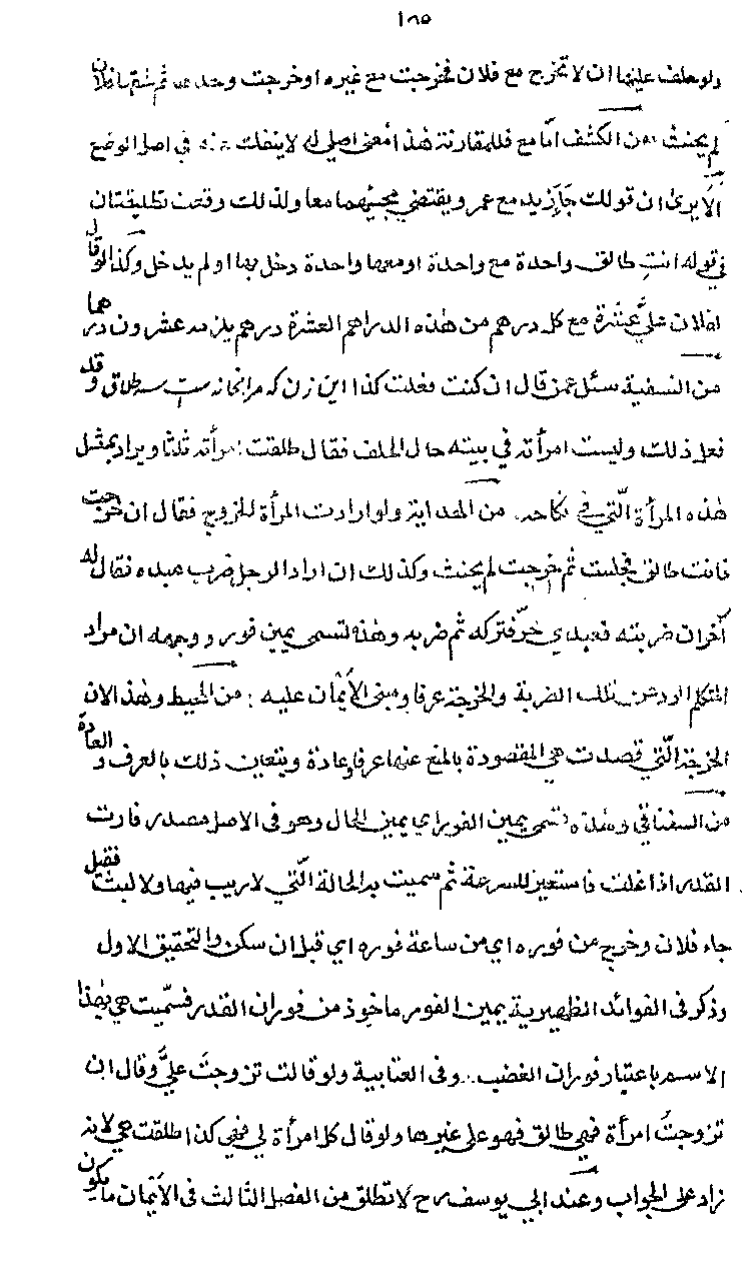 ١٨٥
ولو حلف عليها ان لا تخرج مع فلان فخرجت مع غيره او خرجت وحدها ثم لحقها فلان
لم يحنث من الكشف اما مع فللمقارنة هذا معنى اصلي له لا ينفك عنه في اصل الوضع
الا يرى ان قولك جاء زيد مع عمرو يقتضي مجيئهما معا ولذلك وقعت تطليقتان
في قوله انت طالق واحدة مع واحدة او معها واحدة دخل بها او لم يدخل وكذا لو قال
لفلان علي عشرة مع كل درهم من هذه الدراهم العشرة درهم يلزمه عشرون درهما
من النسفية سئل عمن قال ان كنت فعلت كذا اين زن كه مرا بخانه ست بسه طلاق وقد
فعل ذلك وليست امرأته في بيته حال الحلف فقال طلقت امرأته ثلثا ويراد بمثل
هذه المرأة التي في نكاحه من الهداية ولو ارادت المرأة للخروج فقال ان خرجت
فانت طالق فجلست ثم خرجت لم يحنث وكذلك ان اراد الرجل ضرب عبده فقال له
آخر ان ضربته فعبدي حر فتركه ثم ضربه وهذه تسمى يمين فور ووجهه ان مراد
المتكلم الرد عن تلك الضربة والخرجة عرفا ومبنى الأيمان عليه من المحيط وهذا لان
الخرجة التي قصدت هي المقصودة بالمنع عنها عرفا وعادة ويتعين ذلك بالعرف والعادة
من السغناقي وهذه تسمى يمين الفور اي يمين الحال وهو في الاصل مصدر فارت
القدر اذا غلت فاستعير للسرعة ثم سميت به الحالة التي لا ريب فيها ولا لبث فقيل
جاء فلان وخرج من فوره اي من ساعة فوره اي قبل ان سكن والتحقيق الاول
وذكر في الفوائد الظهيرية يمين الفور ماخوذ من فوران القدر فسميت هي بهذا
الاسم باعتبار فوران الغضب وفي العتابية ولو قالت تزوجت علي وقال ان
تزوجت امرأة فهي طالق فهو على غيرها ولو قال كل امرأة لي فهي كذا طلقت هي لانه
زاد على الجواب وعند ابي يوسف رح لا تطلق من الفصل الثالث في الأيمان ما يكون